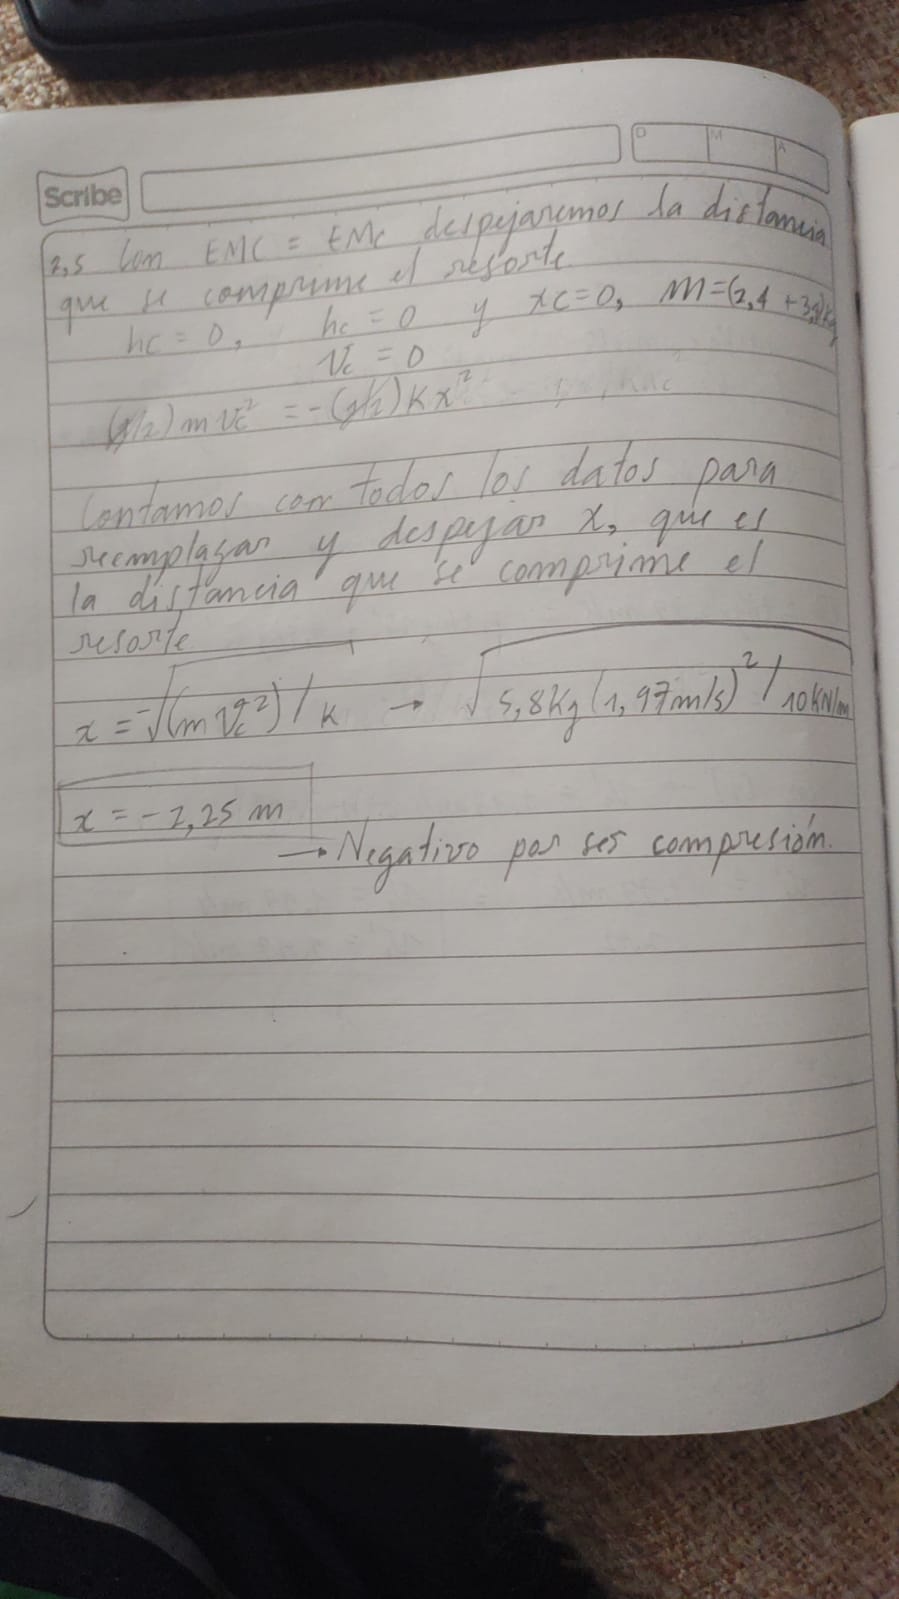 D M A
Scribe
2,5 Con EMC = EMc despejaremos la distancia
que se comprime el resorte
hc = 0, hc = 0 y xc = 0, m = (2,4 + 3,4)kg
Vc = 0
(1/2) m Vc² = -(1/2) K x²
Contamos con todos los datos para
reemplazar y despejar x, que es
la distancia que se comprime el
resorte
x = -√(m Vc²) / K → √5,8Kg (1,97m/s)² / 10KN/m
x = -2,25 m
→ Negativo por ser compresión.